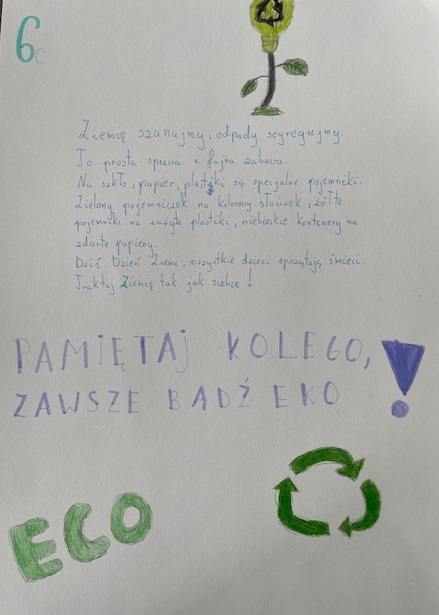 6c
Ziemię szanujmy, odpady segregujmy.
To prosta sprawa i fajna zabawa.
Na szkło, papier, plastiki są specjalne pojemniki.
Zielony pojemniczek na kolorowy słoiczek, żółte
pojemniki na zużyte plastiki, niebieskie kontenery na
zdarte papiery.
Dziś Dzień Ziemi, wszystkie dzieci sprzątają śmieci.
Traktuj Ziemię tak jak siebie!
PAMIĘTAJ KOLEGO,
ZAWSZE BĄDŹ EKO!
ECO